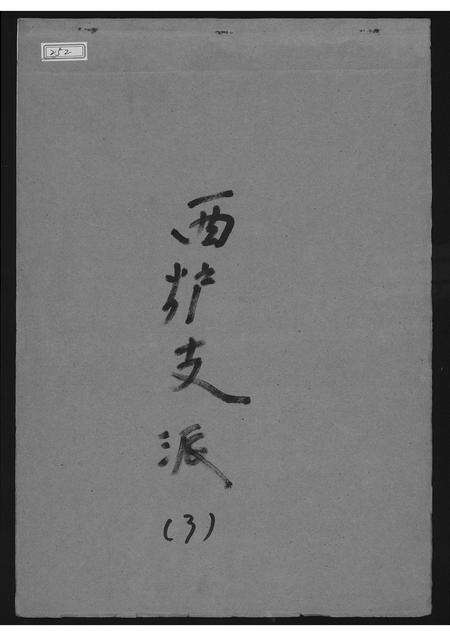 252
西炉支派
(3)